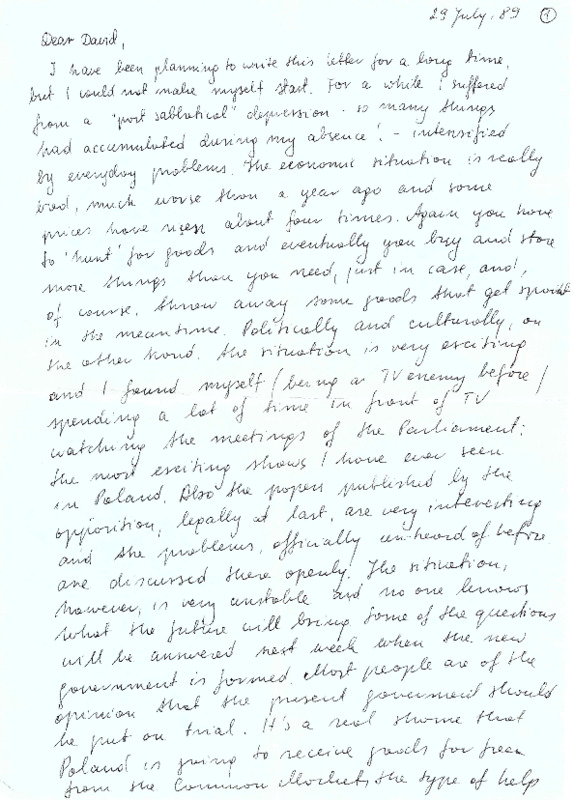 29 July, 89 ①
Dear David,
I have been planning to write this letter for a long time,
but I could not make myself start. For a while I suffered
from a "post sabbatical" depression - so many things
had accumulated during my absence! - intensified
by everyday problems. The economic situation is really
bad, much worse than a year ago and some
prices have risen about four times. Again you have
to "hunt" for goods and eventually you buy and store
more things than you need, just in case, and,
of course, throw away some goods that get spoiled
in the meantime. Politically and culturally, on
the other hand, the situation is very exciting
and I found myself /being a TV enemy before/
spending a lot of time in front of TV
watching the meetings of the Parliament:
the most exciting shows I have ever seen
in Poland. Also the papers published by the
opposition, legally at last, are very interesting
and the problems, officially unheard of before
are discussed there openly. The situation,
however, is very unstable and no one knows
what the future will bring. Some of the questions
will be answered next week when the new
government is formed. Most people are of the
opinion that the present government should
be put on trial. It's a real shame that
Poland is going to receive goods for free
from the Common Market, the type of help